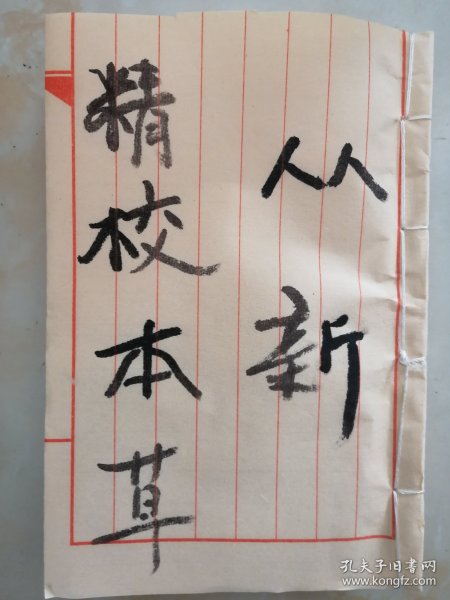 精校本草
从新
孔夫子旧书网
www.kongfz.com